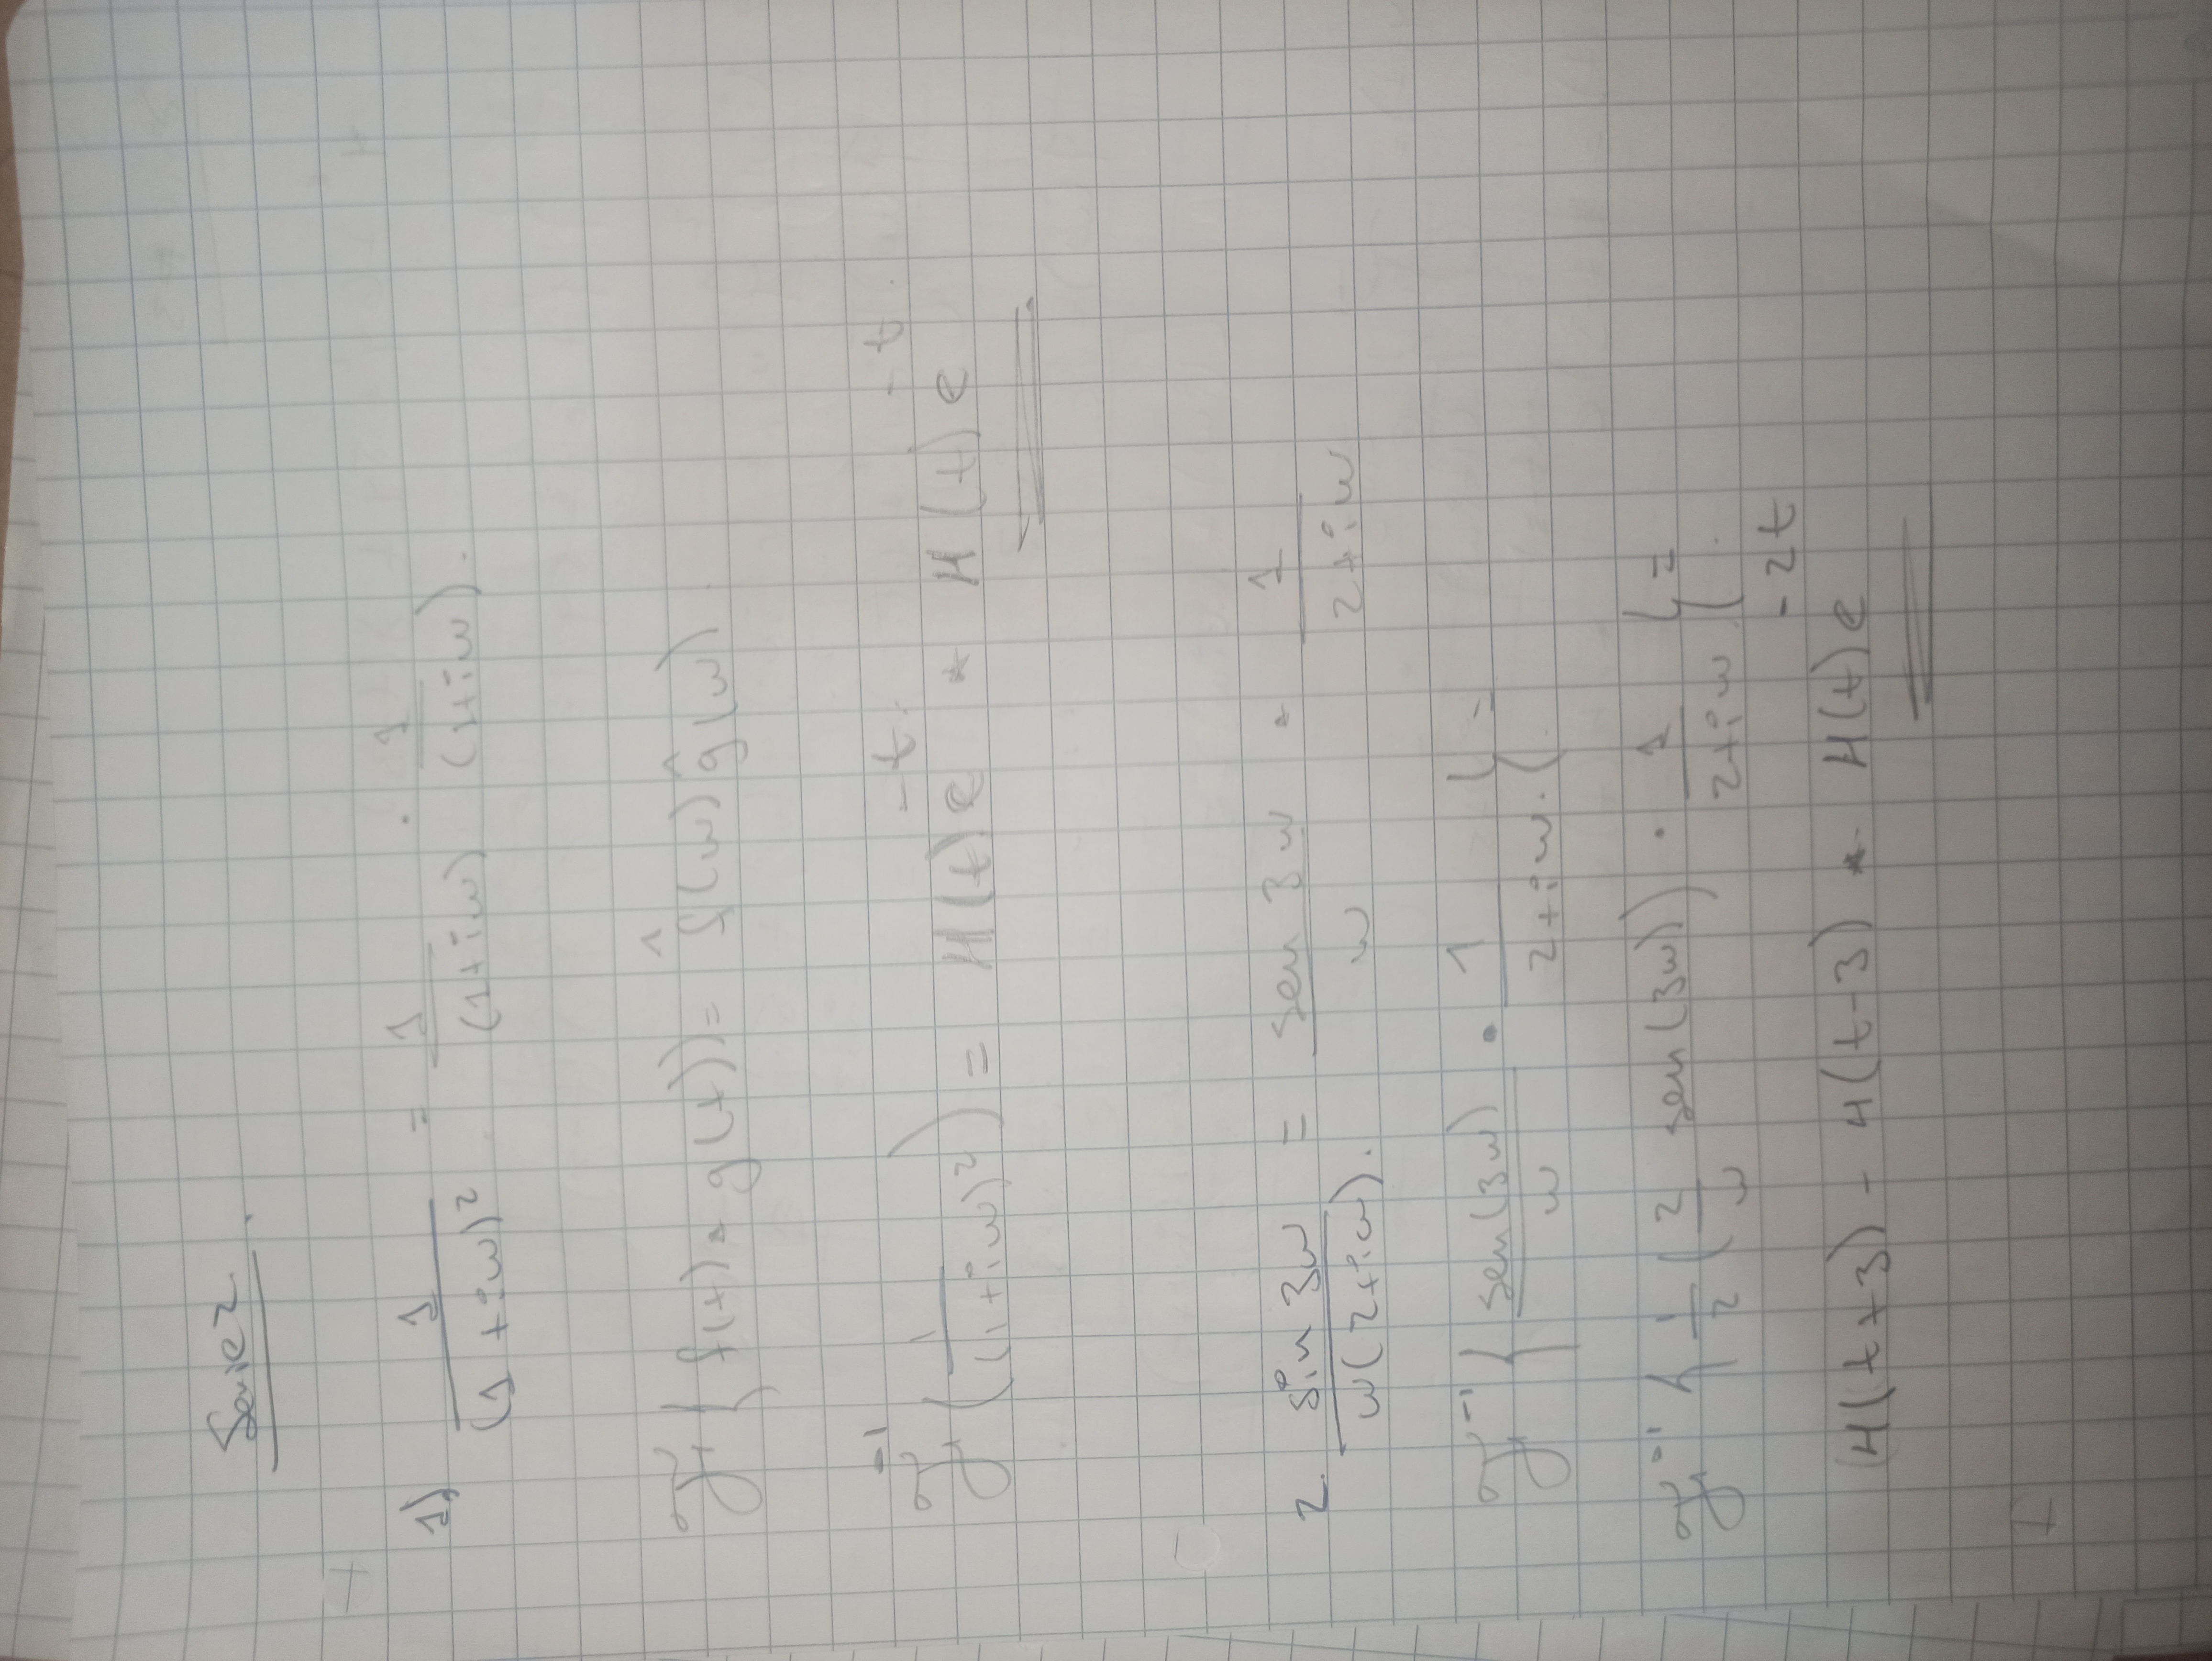 Serie 2.
1) 1/(1 + iw)² = 1/(1+iw) · 1/(1+iw).
F{f(t) * g(t)} = f̂(w) ĝ(w).
F⁻¹(1/(1+iw)²) = H(t) e^-t * H(t) e^-t.
2. sin 3w/w(2+iw). = sen 3w/w · 1/2+iw
F⁻¹{sen(3w)/w · 1/2+iw.} =
F⁻¹{1/2 (2/w sen(3w)) · 1/2+iw} =
(H(t+3) - H(t-3) * H(t) e^-2t